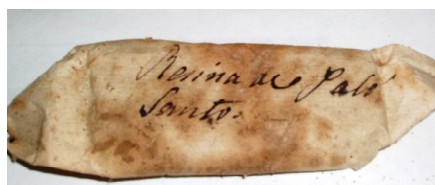 Resina de Palo
Santo.